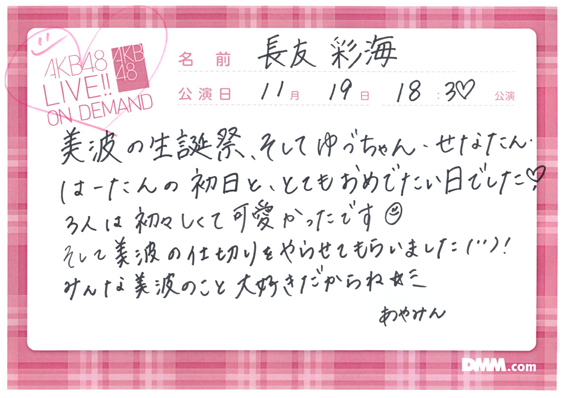 AKB48
LIVE!!
ON DEMAND
AKB
48
名前 長友 彩海
公演日 11月 19日 18:30♡ 公演
美波の生誕祭、そしてゆうちゃん・せなたん・
はーたんの初日と、とてもおめでたい日でした♡
3人は初々しくて可愛かったです☺
そして美波の仕切りをやらせてもらいました(¨)!
みんな美波のこと大好きだからね☆ミ
あやみん
DMM.com